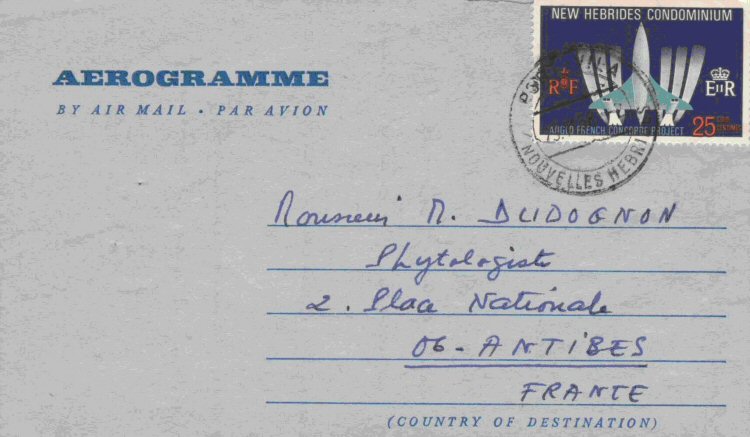 NEW HEBRIDES CONDOMINIUM
RF
EIIR
ANGLO FRENCH CONCORDE PROJECT
25 GOLD CENTIMES
NOUVELLES HEBRI
AEROGRAMME
BY AIR MAIL • PAR AVION
Monsieur M. DUDOGNON
Phytologiste
2. Place Nationale
06 - ANTIBES
FRANCE
(COUNTRY OF DESTINATION)